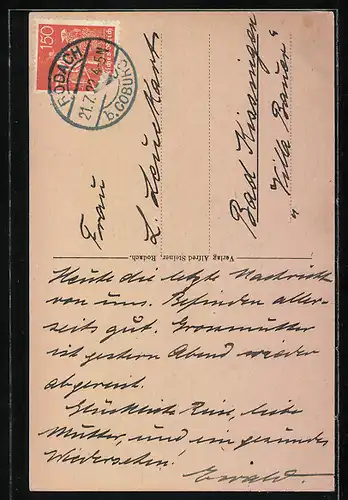 150
RODACH
21.7.22.4-5N
b. COBURG
Frau
L. Leuckart
Bad Kissingen
"Villa Bauer"
Verlag Alfred Steiner, Rodach.
Heute die letzte Nachricht
von uns. Befinden aller-
seits gut. Grossmutter
ist gestern Abend wieder
abgereist.
Glückliche Reise, liebe
Mutter, und ein gesundes
Wiedersehen!
Ewald.